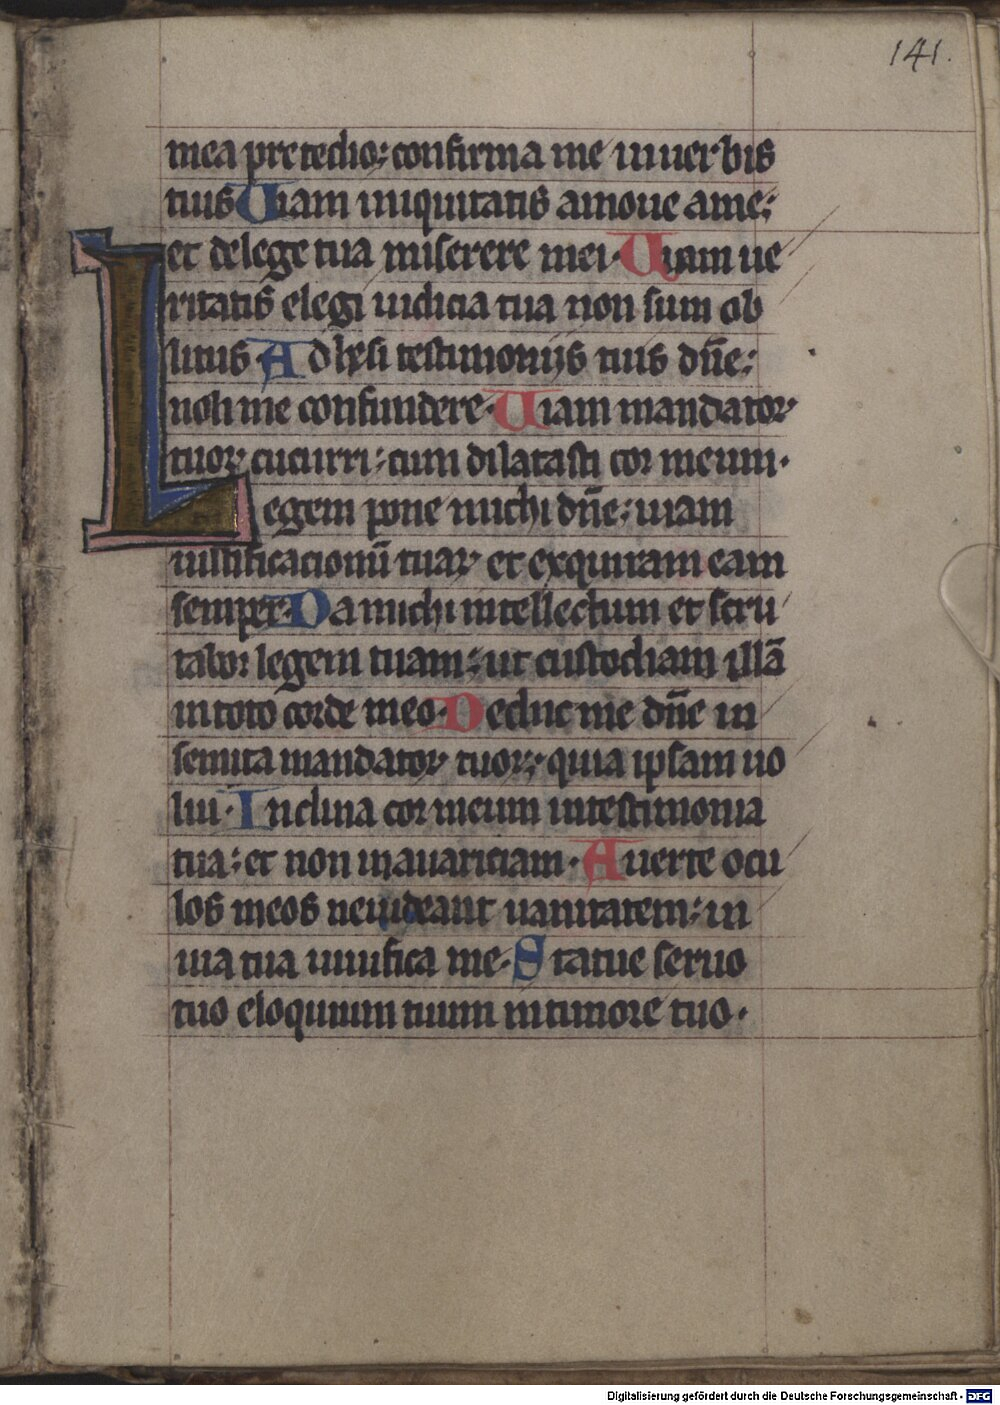 141.
mea pre tedio: confirma me in uerbis
tuis Uiam iniquitatis amoue a me:
et de lege tua miserere mei. Uiam ue
ritatis elegi iudicia tua non sum ob
litus Adhesi testimonijs tuis dn̄e:
noli me confundere. Uiam mandatoꝝ
tuoꝝ cucurri: cum dilatasti cor meum.
Legem pone michi dn̄e: uiam
iustificacionū tuaꝝ et exquiram eam
semper. Da michi intellectum et scru
tabor legem tuam: ut custodiam illā
in toto corde meo. Deduc me dn̄e in
semita mandatoꝝ tuoꝝ: quia ipsam uo
lui. Inclina cor meum in testimonia
tua: et non in auariciam. Auerte ocu
los meos ne uideant uanitatem: in
uia tua uiuifica me. Statue seruo
tuo eloquium tuum in timore tuo.
Digitalisierung gefördert durch die Deutsche Forschungsgemeinschaft - DFG